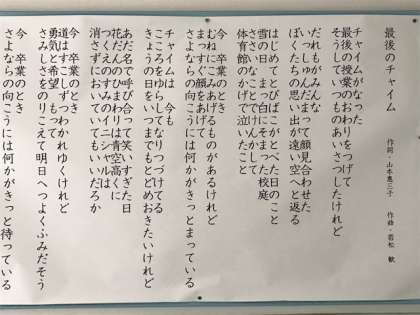 最後のチャイム
作詞・山本惠三子　作曲・若松　歓
チャイムがなった
最後の授業のおわりをつげて
そうしていつものあいさつしたけれど
だれもがみんな
いっしゅんだまって顔見合わせた
ぼくたちの思い出が遠い空へと返る
はじめてとびばこがとべた日のこと
雪の日　まっ白にそまった校庭
ささいなことでけんかして
体育館のかげで泣いたこと
今　卒業のとき
むねにこみあげるものがあるけれど
まっすぐ顔をあげて
さよならの向こうには何かがきっとまっている
チャイムは　今も
こころをゆらしてなりつづけてる
きょうの日をいつまでもとどめおきたいけれど
あだ名で呼び合って笑いすぎた日
花だんのひまわりは青空高くに
つくえのすみのイニシャルは
消さずにおいていてもいいだろか
今　卒業のとき
道はすこしずつわかれゆくけれど
勇気と希望　もって
さみしさをのりこえて明日へつよくふみだそう
今　卒業のとき
さよならの向こうには何かがきっと待っている